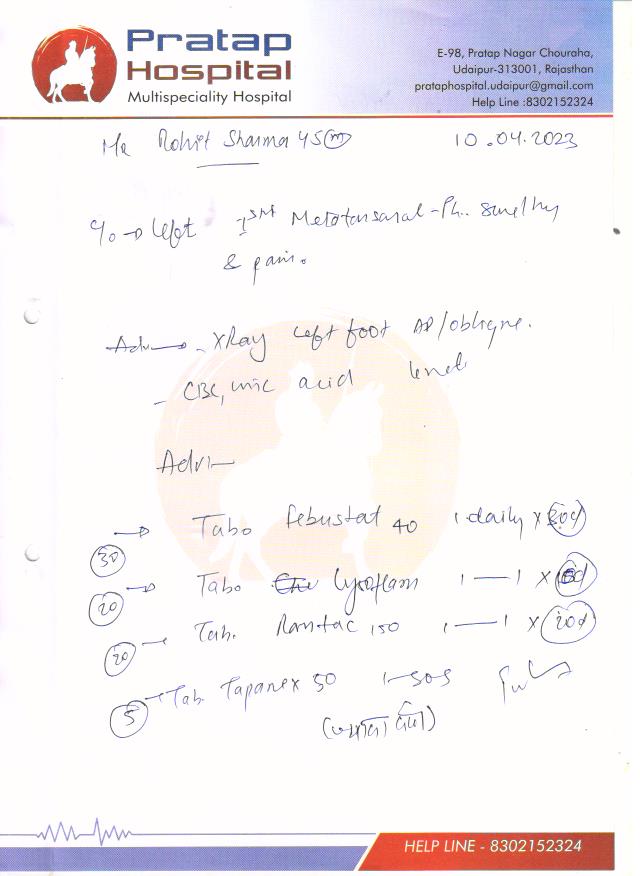 Pratap
Hospital
Multispeciality Hospital
E-98, Pratap Nagar Chouraha,
Udaipur-313001, Rajasthan
prataphospital.udaipur@gmail.com
Help Line :8302152324
Mr Rohit Sharma 45 (m) 10.04.2023
C/o → left 1st Metatarsaral-Ph. Swelling
& pain.
Adv → - XRay left foot AP/oblique.
- CBC, uric acid level
Adv:-
→ Tab. Febustat 40 1 daily x 30d
30
→ Tab. Lysoflam 1 — 1 x 10d
20
- Tab. Rantac 150 1 — 1 x 20d
20
- Tab. Tapanex 50 1-SOS
5
HELP LINE - 8302152324